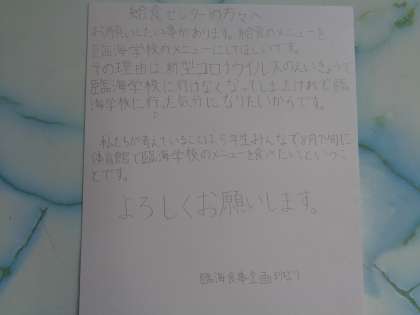 給食センターの方々へ
お願いしたい事があります。給食のメニューを
臨海学校のメニューにしてほしいです。
その理由は、新型コロナウイルスのえいきょうで
臨海学校に行けなくなってしまったけれど臨
海学校に行った気分になりたいからです。
私たちが考えていることは、5年生みんなで8月下旬に
体育館で臨海学校のメニューを食べたいというこ
とです。
よろしくお願いします。
臨海食事企画